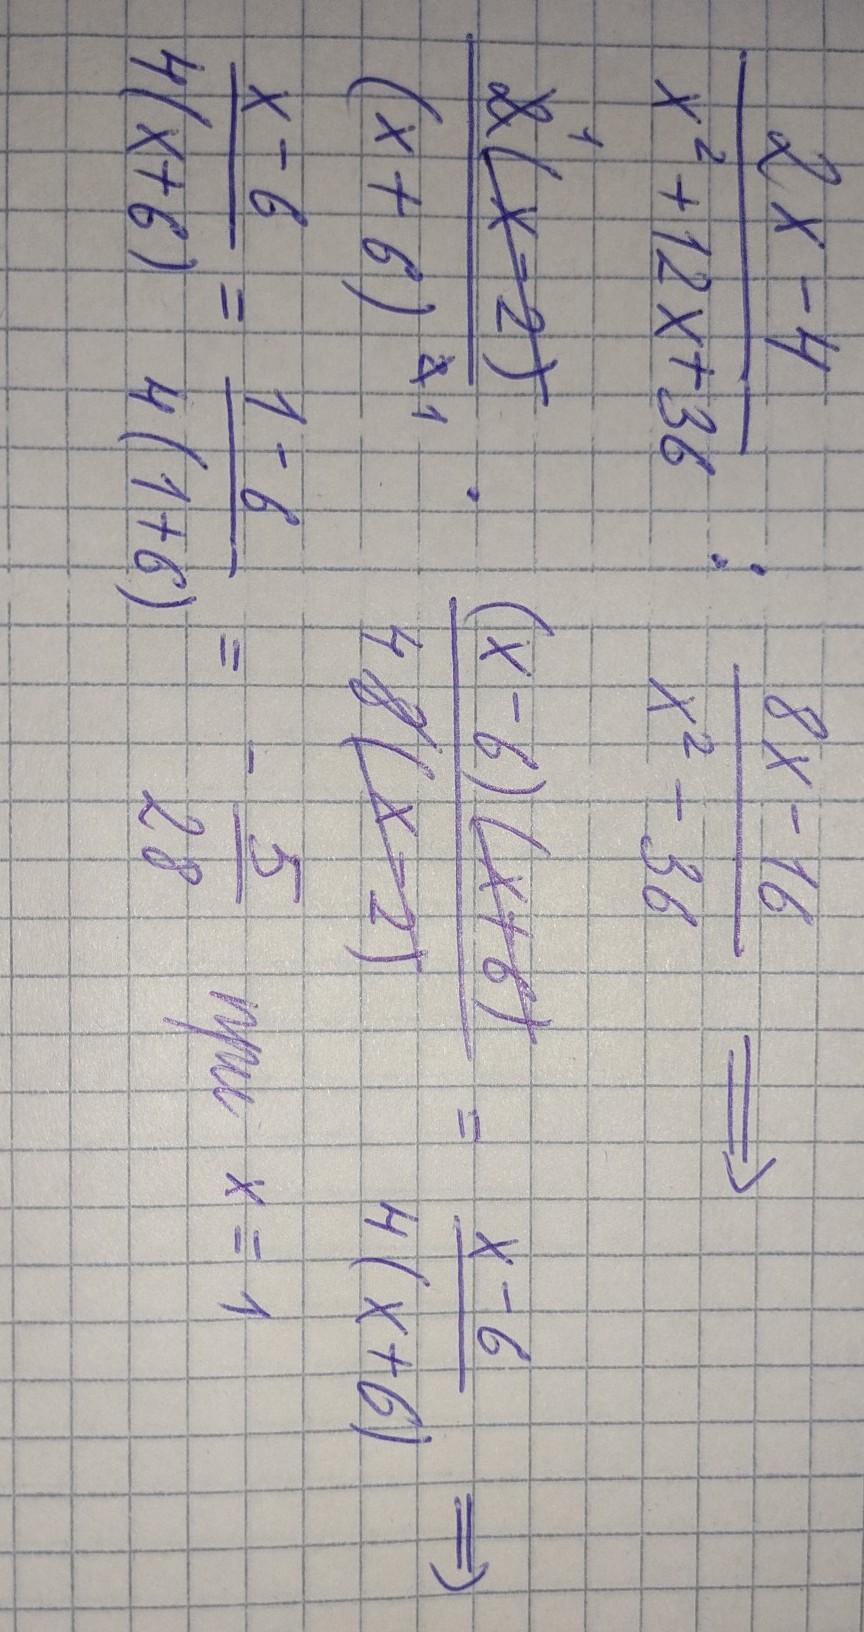 2x-4/x²+12x+36 : 8x-16/x²-36 ⇒
2¹(x-2)/(x+6)²¹ · (x-6)(x+6)/4 8(x-2) = x-6/4(x+6) ⇒
x-6/4(x+6) = 1-6/4(1+6) = - 5/28 при x=1